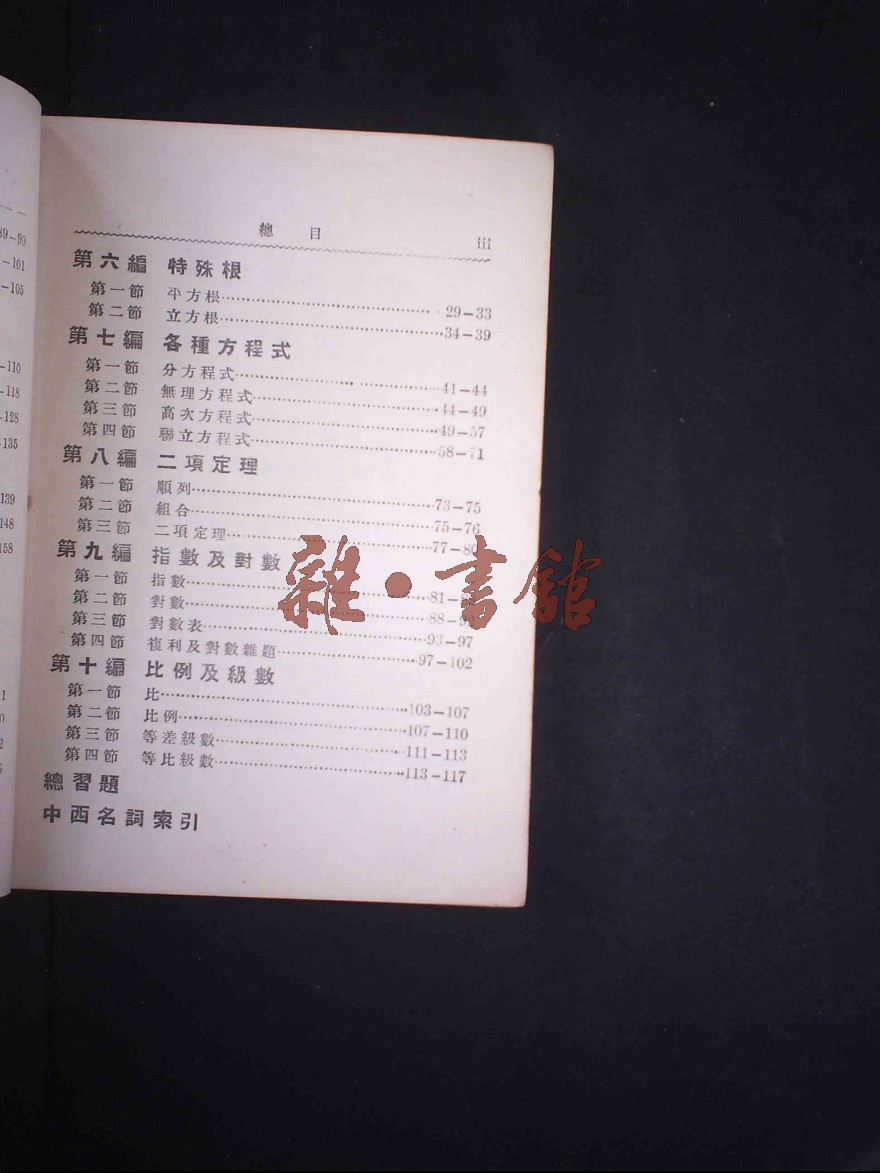 89-90
-101
-105
-110
-118
-128
-135
139
148
158
1
0
2
5
總 目 iii
第六編 特殊根
第一節 平方根 29-33
第二節 立方根 34-39
第七編 各種方程式
第一節 分方程式 41-44
第二節 無理方程式 44-49
第三節 高次方程式 49-57
第四節 聯立方程式 58-71
第八編 二項定理
第一節 順列 73-75
第二節 組合 75-76
第三節 二項定理 77-80
第九編 指數及對數
第一節 指數 81-
第二節 對數 88-
第三節 對數表 93-97
第四節 複利及對數雜題 97-102
第十編 比例及級數
第一節 比 103-107
第二節 比例 107-110
第三節 等差級數 111-113
第四節 等比級數 113-117
總習題
中西名詞索引
雜·書館